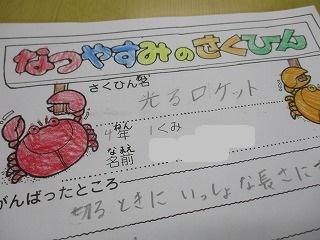 なつやすみのさくひん
さくひん名
光るロケット
4年 1くみ
名前
がんばったところ
切る ときに いっしょな長さに